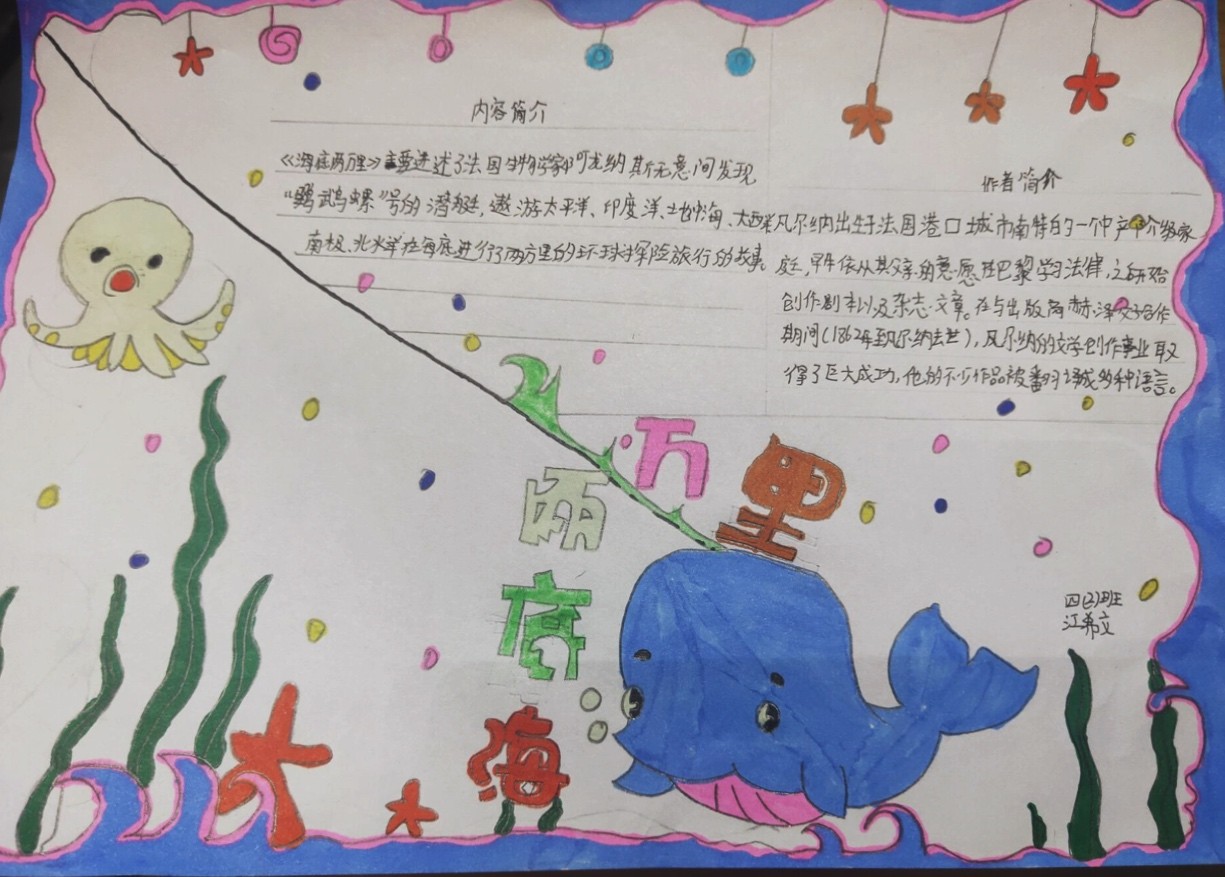 内容简介
《海底两万里》主要讲述了法国生物学家阿龙纳斯无意间发现
"鹦鹉螺"号的潜艇,遨游太平洋、印度洋、地中海、大西洋
南极、北冰洋在海底进行了两万里的环球探险旅行的故事。
作者简介
凡尔纳出生于法国港口城市南特的一个中产阶级家
庭,早年依从其父亲的意愿在巴黎学习法律,之后开始
创作剧本以及杂志文章。在与出版商赫泽父子合作
期间(1862年至凡尔纳去世),凡尔纳的文学创作事业取
得了巨大成功,他的不少作品被翻译成多种语言。
海底两万里
四(2)班
江